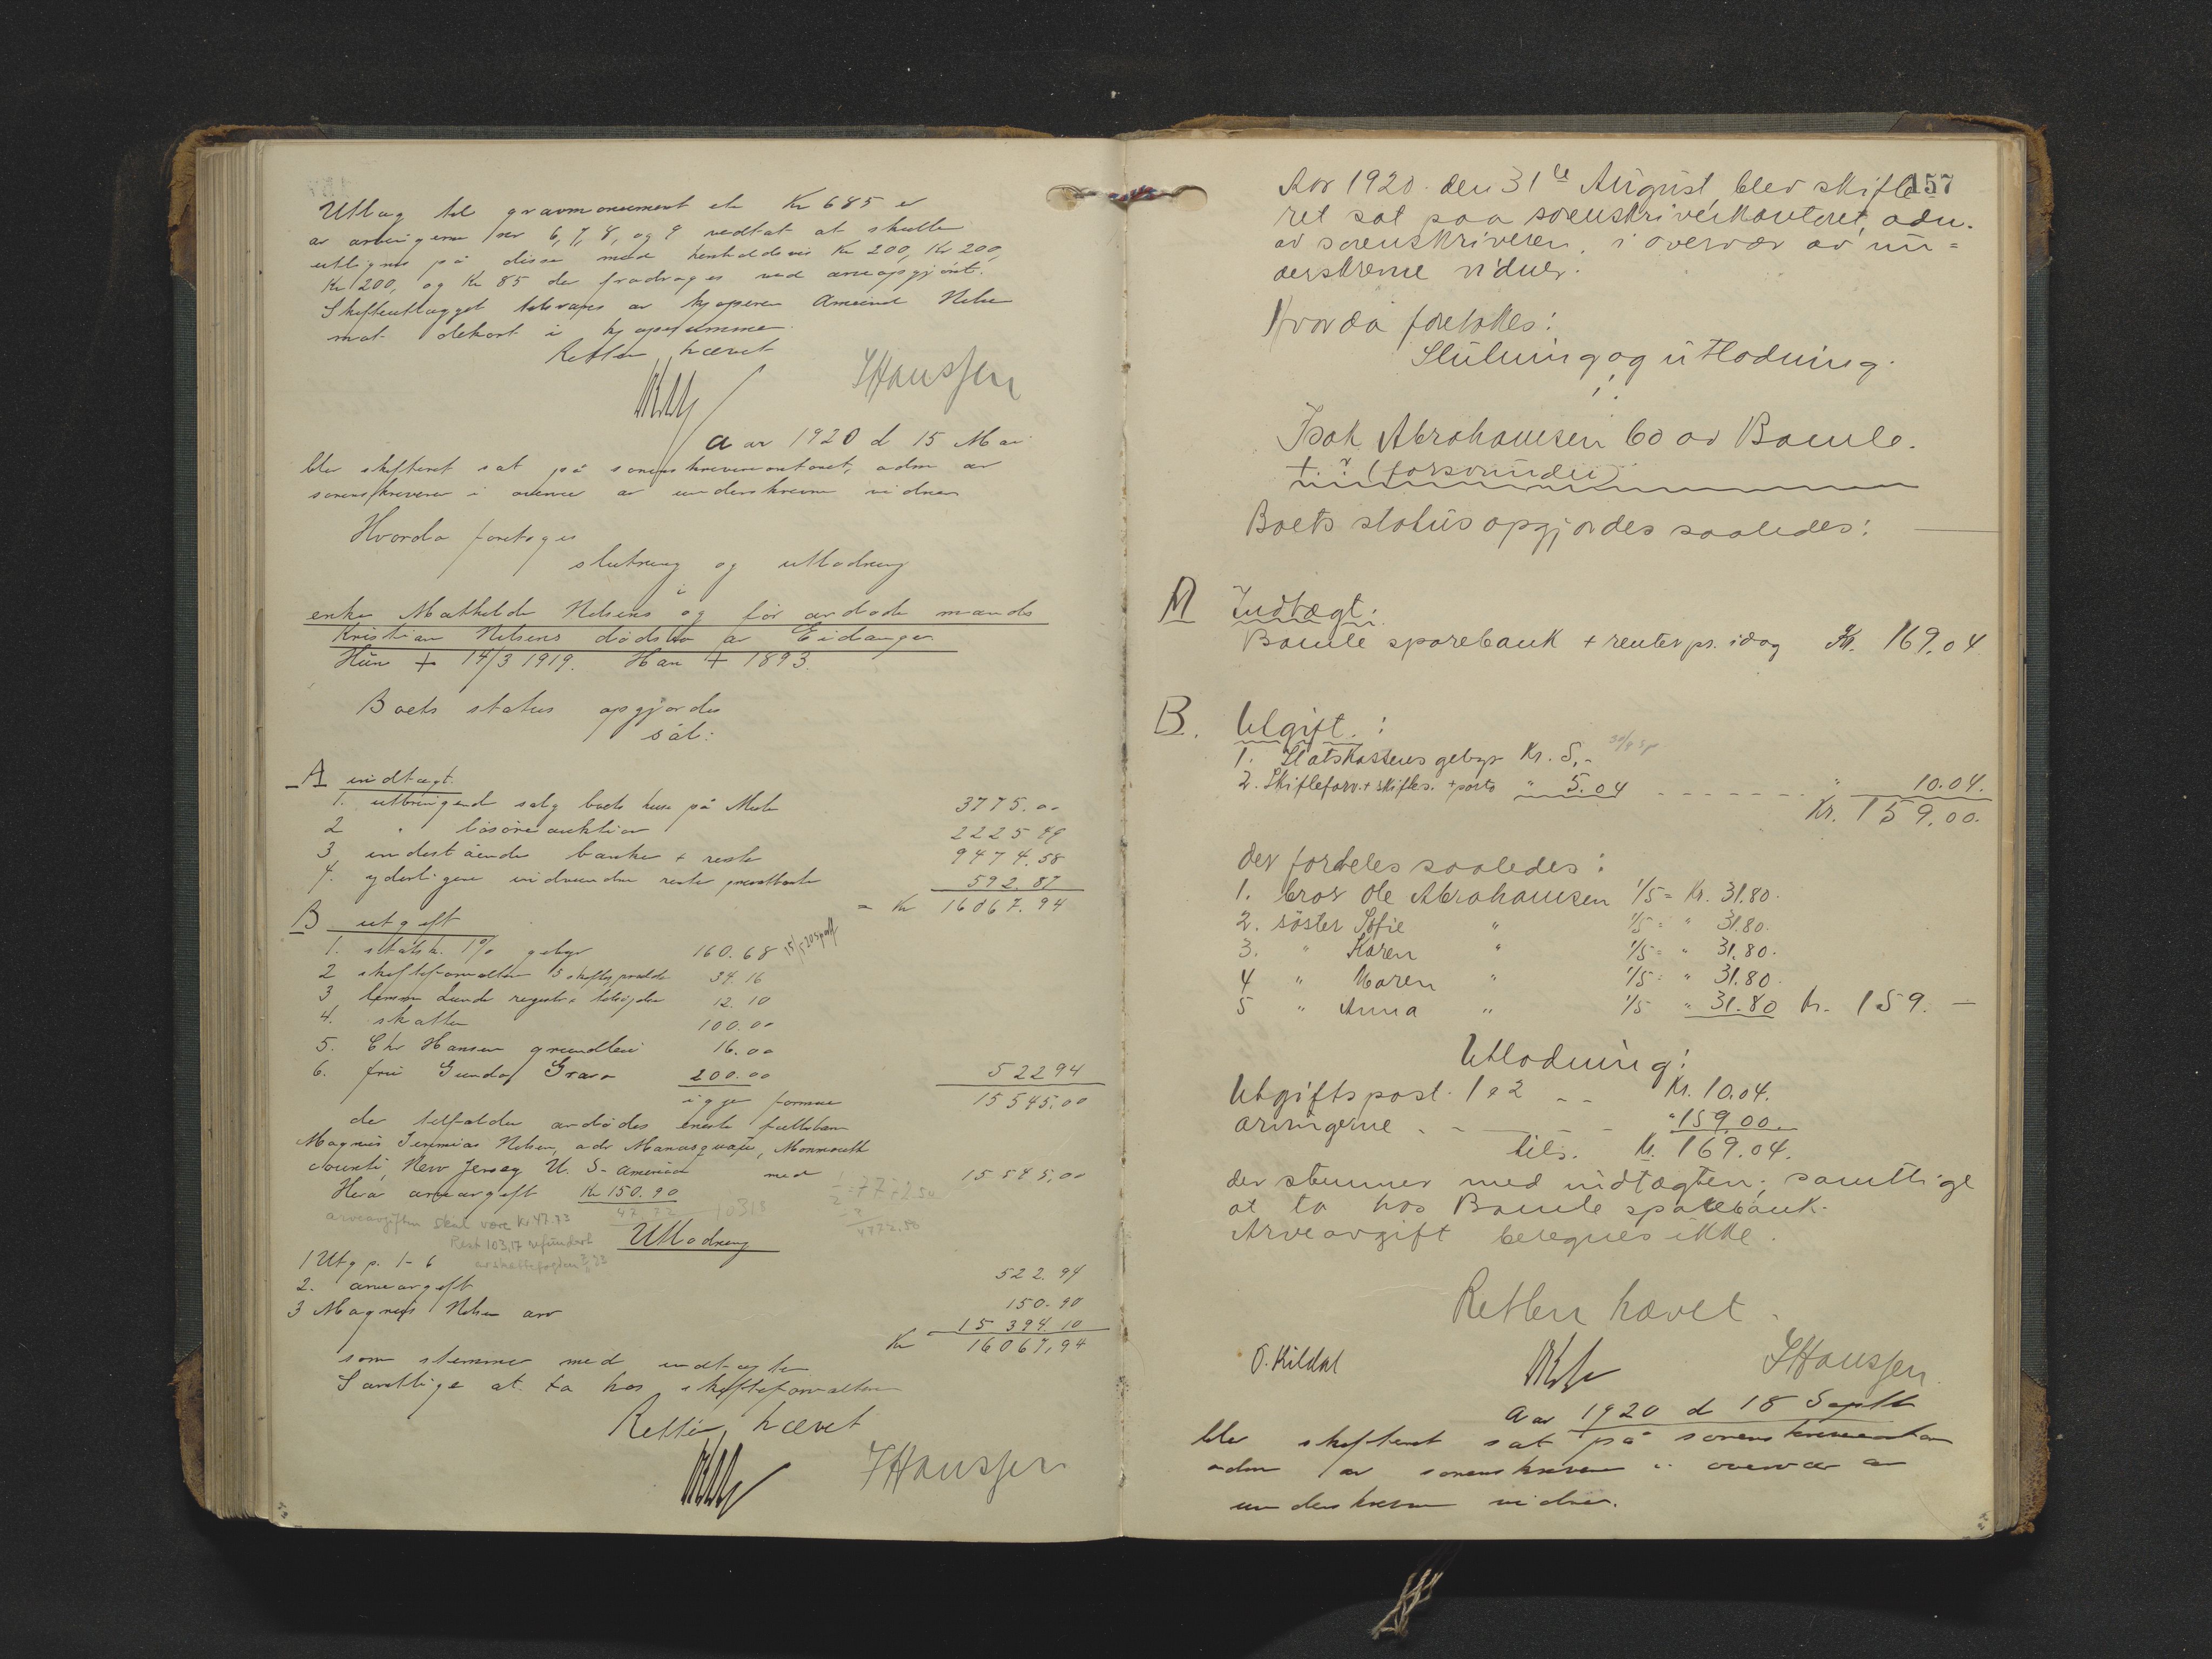 Utlag til gravmonument etc Kr 685 er
av arvingerne nr 6, 7, 8, og 9 vedtat at skulle
utlignes på disse med henholdsvis Kr 200, Kr 200,
Kr 200, og Kr 85 der fradrages ved arveopgjöret.
Skifteutlægget kjöperen Nilsen
mot dekort i kjöpesummen.
Retten hævet
SHanssen
Aar 1920 d 15 Mai
blev skifteret sat på sorenskriverkontoret, adm av
sorenskriveren i overvær av underskrevne vidner
Hvorda foretoges
slutning og utlodning
i
enke Mathilde Nilsens og før avdöde mands
Kristian Nilsens dödsbo av Eidanger
Hun + 14/3 1919. Han + 1893.
Boets status opgjordes
sål:
A indtægt.
1. utbringende salg boets hus på Mule 3775.00
2 " lösöreauktion 2225 49
3 indestående banken + rente 9474.58
4. yderligere indvundne renter 592.87
= Kr 16067.94
B utgift
1. statsk. 1% gebyr 160.68
2 skifteforvalteren 34.16
3 lensm Lunde registr. 12.10
4. skatter 100.00
5. Chr Hansen grundleie 16.00
6. fru Gunda Grava 200.00 522 94
igjen formue 15545.00
der tilfalder avdödes eneste fællesbarn
Magnus Jeremias Nilsen, adr Manasquan, Monmouth
county, New Jersey U. S. America med 15545,00
Herav arveavgift Kr 150.90
arveavgiften skal være Kr 47.73
Rest 103,17 refundert
av skattefogden
Utlodning
1 Utg p. 1-6 522.94
2. arveavgift 150.90
3 Magnus Nilsen arv 15394.10
Kr 16067,94
som stemmer med indtægten
Samtlige at ta hos skifteforvalteren
Retten hævet
SHanssen
157
Aar 1920 den 31te August, blev skifte
ret sat paa sorenskriverkontoret, adm.
av sorenskriveren, i overvær av un=
derskrevne vidner.
Hvorda foretokes:
Slutning og utlodning.
i
Isak Abrahamsen bo av Bamle.
+ ? (forsvunden)
Boets status opgjordes saaledes:
A Indtægt:
Bamle sparebank + renter pr. idag Kr. 169.04
B. Utgift:
1. Statskassens gebyr Kr. 5,-
2. Skifteforv. + skiftes. + porto " 5.04 " 10.04.
Kr. 159.00.
der fordeles saaledes:
1. bror Ole Abrahamsen 1/5 = Kr. 31.80.
2. söster Sofie " 1/5 = " 31.80.
3. " Karen " 1/5 = " 31.80.
4 " Maren " 1/5 = " 31.80.
5 " Anna " 1/5 " 31.80 Kr. 159.—
Utlodning:
Utgiftspost 1 & 2 Kr. 10.04.
arvingerne " 159.00
tils. Kr. 169.04.
der stemmer med indtægten; samtlige
at ta hos Bamle sparebank.
Arveavgift beregnes ikke.
Retten hævet.
O. Kildal
SHanssen.
Aar 1920 d 18 Septb
blev skifteret sat på sorenskriverkontor
adm av sorenskriveren i overvær av
underskrevne vidner.